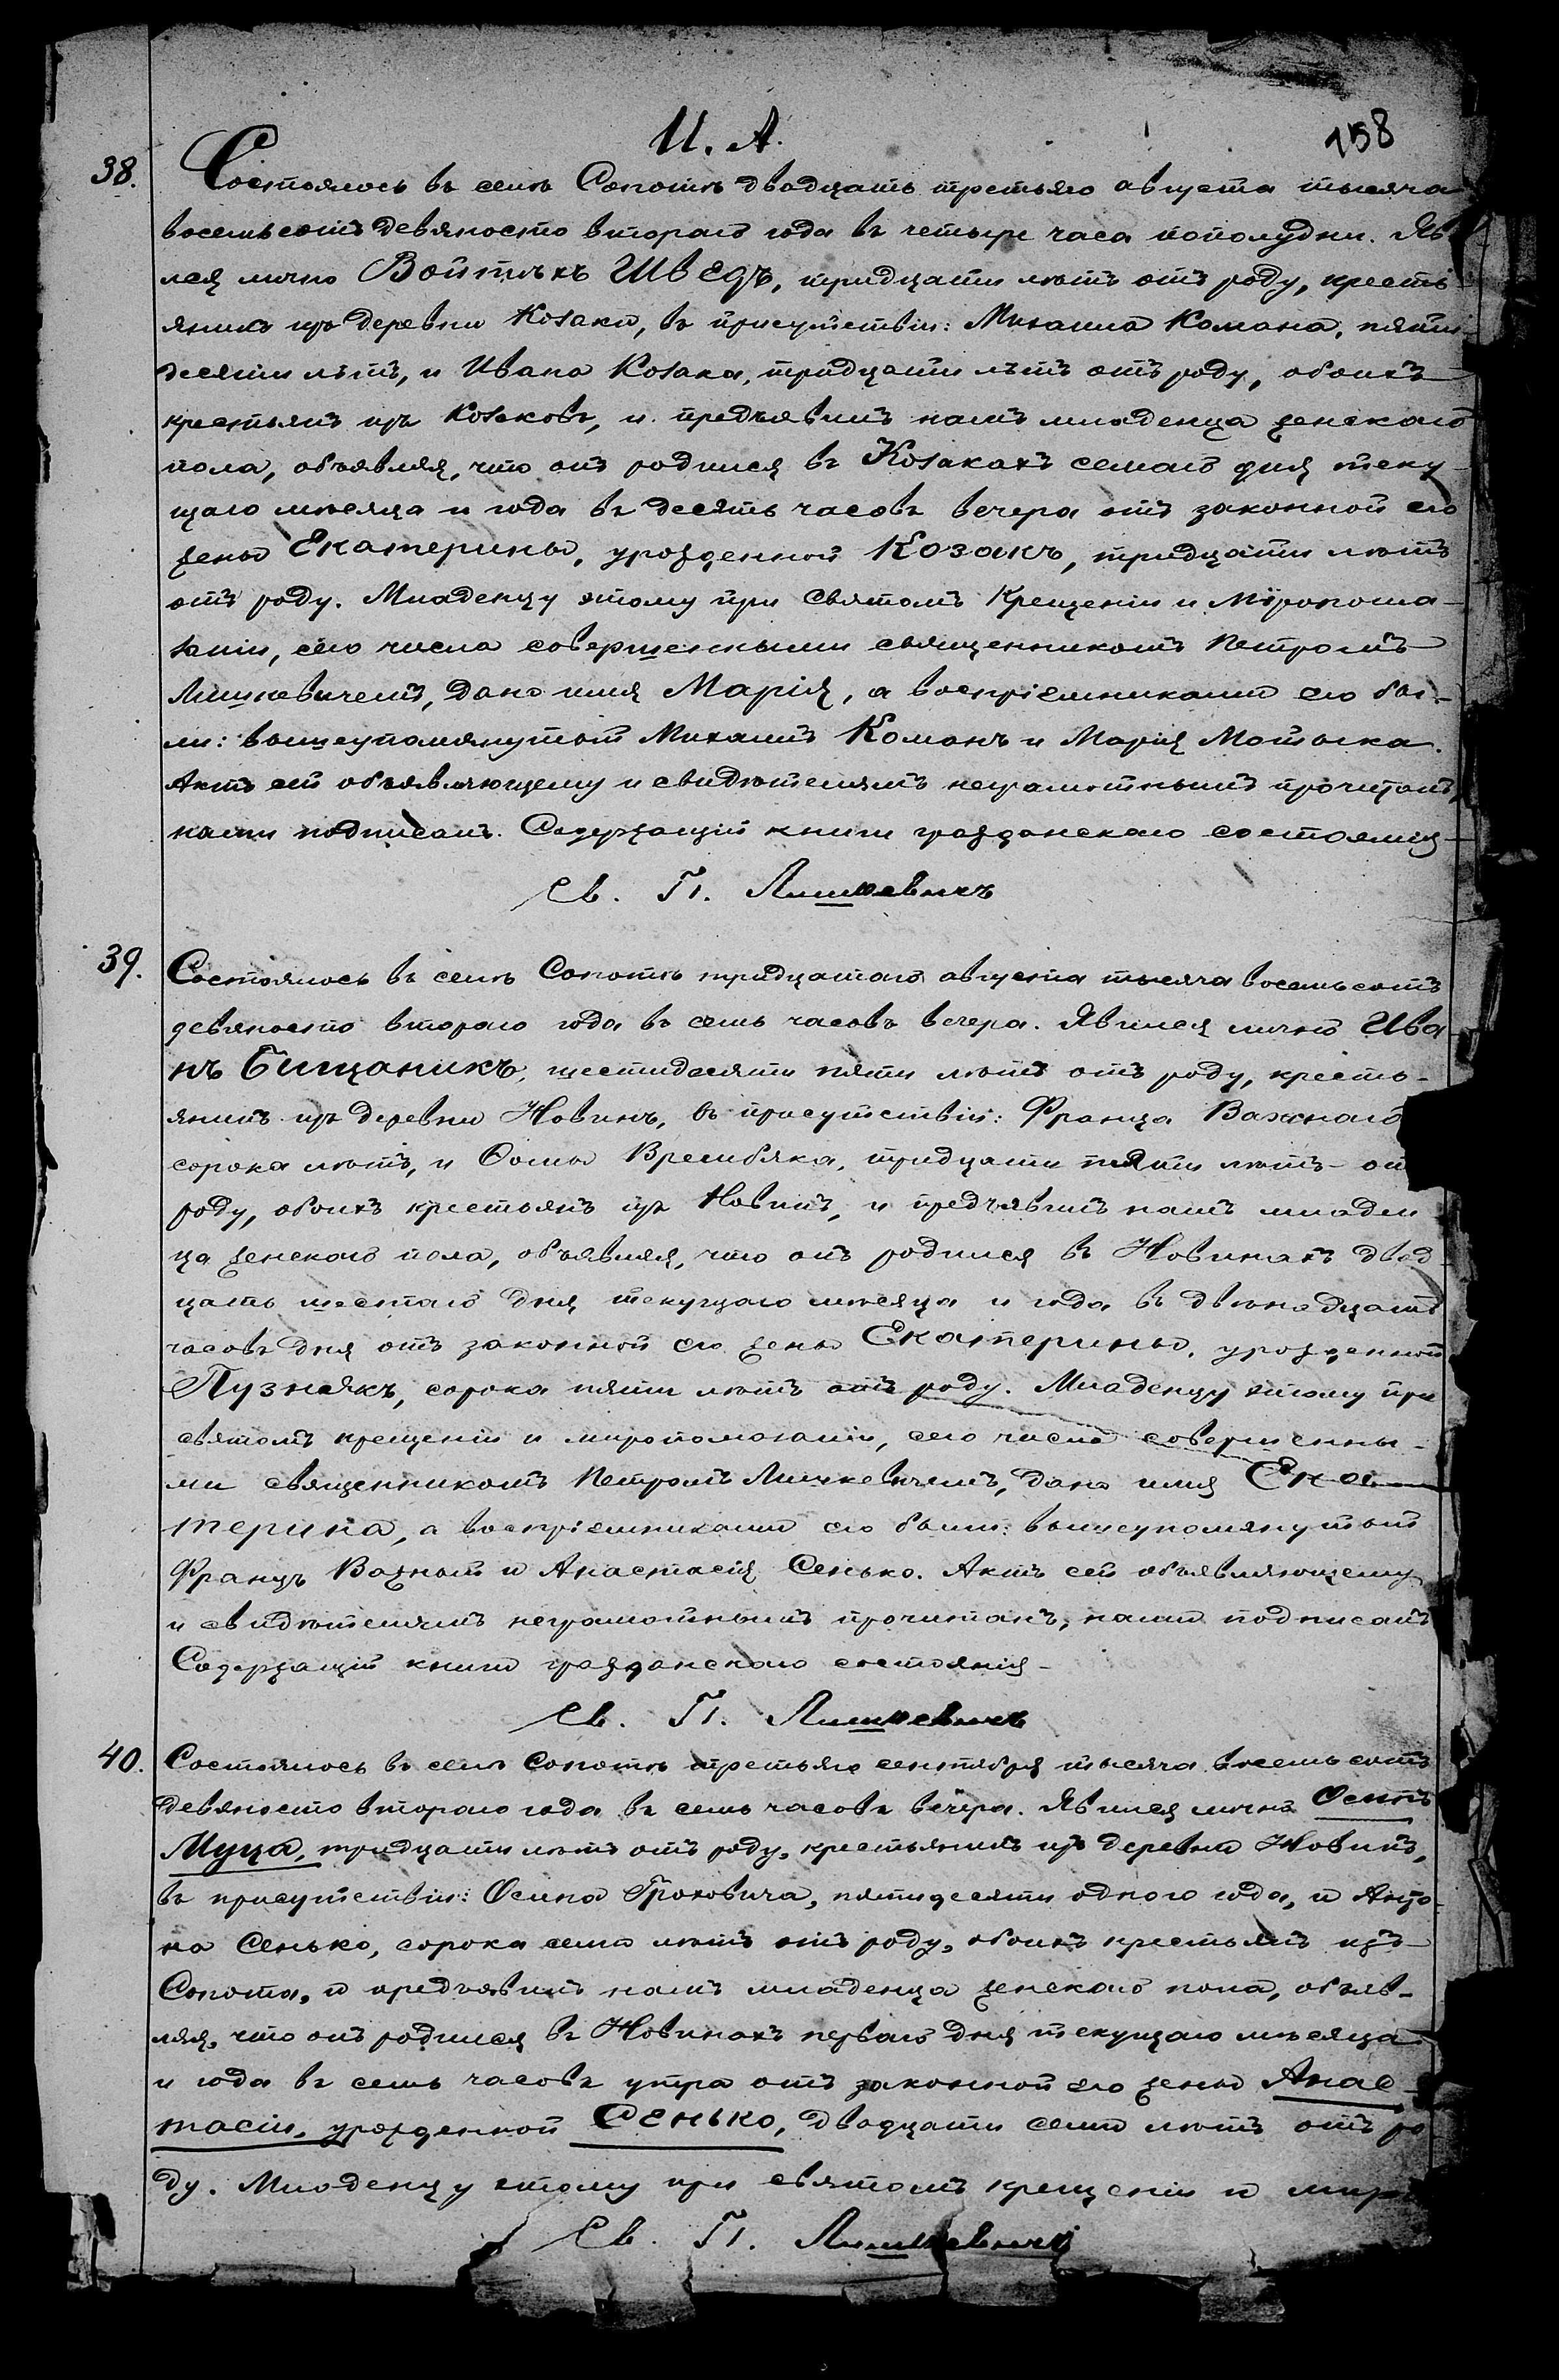 И. А.
158
38. Состоялось въ селѣ Сопотѣ двадцать третьяго августа тысяча
восемьсотъ девяносто втораго года въ четыре часа пополудни. Яв-
лся лично Войтѣхъ Шведъ, тридцати лѣтъ отъ роду, кресть-
янинъ изъ деревни Козаки, въ присутствіи: Михаила Комана, пяти-
десяти лѣтъ, и Ивана Козака, тридцати лѣтъ отъ роду, обоихъ
крестьянъ изъ Козаковъ, и предъявилъ намъ младенца женскаго
пола, объявляя, что онъ родился въ Козакахъ семаго дня теку-
щаго мѣсяца и года въ десять часовъ вечера отъ законной его
жены Екатерины, урожденной Козакъ, тридцати лѣтъ
отъ роду. Младенцу этому при Святомъ Крещеніи и Мѵропома-
заніи, сего числа совершенными священникомъ Петромъ
Лишкевичемъ, дано имя Марія, а воспріемниками его бы-
ли: вышеупомянутый Михаилъ Команъ и Марія Мотыка.
Актъ сей объявляющему и свидѣтелямъ неграмотнымъ прочитанъ,
нами подписанъ. Содержащій книги гражданскаго состоянія
Св. П. Лишкевичъ
39. Состоялось въ селѣ Сопотѣ тридцатаго августа тысяча восемьсотъ
девяносто втораго года въ семь часовъ вечера. Явился лично Ива
нъ Бищаникъ, шестидесяти пяти лѣтъ отъ роду, кресть-
янинъ изъ деревни Новинъ, въ присутствіи: Франца Важнаго
сорока лѣтъ, и Ѳомы Врембяка, тридцати пяти лѣтъ от
роду, обоихъ крестьянъ изъ Новинъ, и предъявилъ намъ младен
ца женскаго пола, объявляя, что онъ родился въ Новинахъ двад-
цать шестаго дня текущаго мѣсяца и года въ двѣнадцать
часовъ дня отъ законной его жены Екатерины, урожденной
Пузнякъ, сорока пяти лѣтъ отъ роду. Младенцу этому при
святомъ крещеніи и миропомазаніи, сего числа совершенны-
ми священникомъ Петромъ Лишкевичемъ, дано имя Ека-
терина, а воспріемниками его были: вышеупомянутый
Францъ Важный и Анастасія Сенько. Актъ сей объявляющему
и свидѣтелямъ неграмотнымъ прочитанъ, нами подписанъ
Содержащій книги гражданскаго состоянія-
Св. П. Лишкевичъ
40. Состоялось въ селѣ Сопотѣ третьяго сентября тысяча восемьсотъ
девяносто втораго года въ семь часовъ вечера. Явился лично Осипъ
Муца, тридцати лѣтъ отъ роду, крестьянинъ изъ деревни Новинъ,
въ присутствіи: Осипа Гроховича, пятидесяти одного года, и Анто-
на Сенько, сорока семи лѣтъ отъ роду, обоихъ крестьянъ изъ
Сопота, и предъявилъ намъ младенца женскаго пола, объяв-
ляя, что онъ родился въ Новинахъ перваго дня текущаго мѣсяца
и года въ семь часовъ утра отъ законной его жены Анас-
тасіи, урожденной Сенько, двадцати семи лѣтъ отъ ро
ду. Младенцу этому при святомъ крещеніи и миро
Св. П. Лишкевичъ